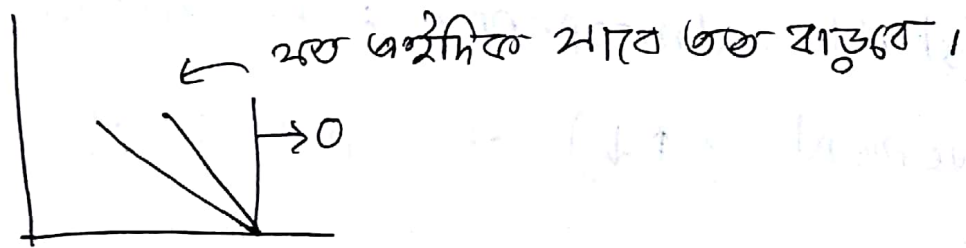 যত এইদিক যাবে তত বাড়বে ।
→ 0